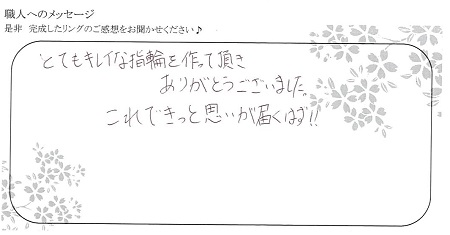 職人へのメッセージ
是非　完成したリングのご感想をお聞かせください♪
とてもキレイな指輪を作って頂き
ありがとうございました。
これできっと思いが届くはず!!